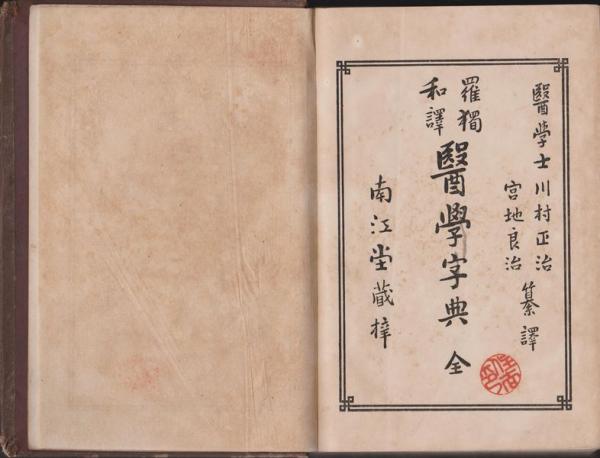 醫學士川村正治
宮地良治
纂譯
羅獨
和譯
醫學字典 全
南江堂蔵梓